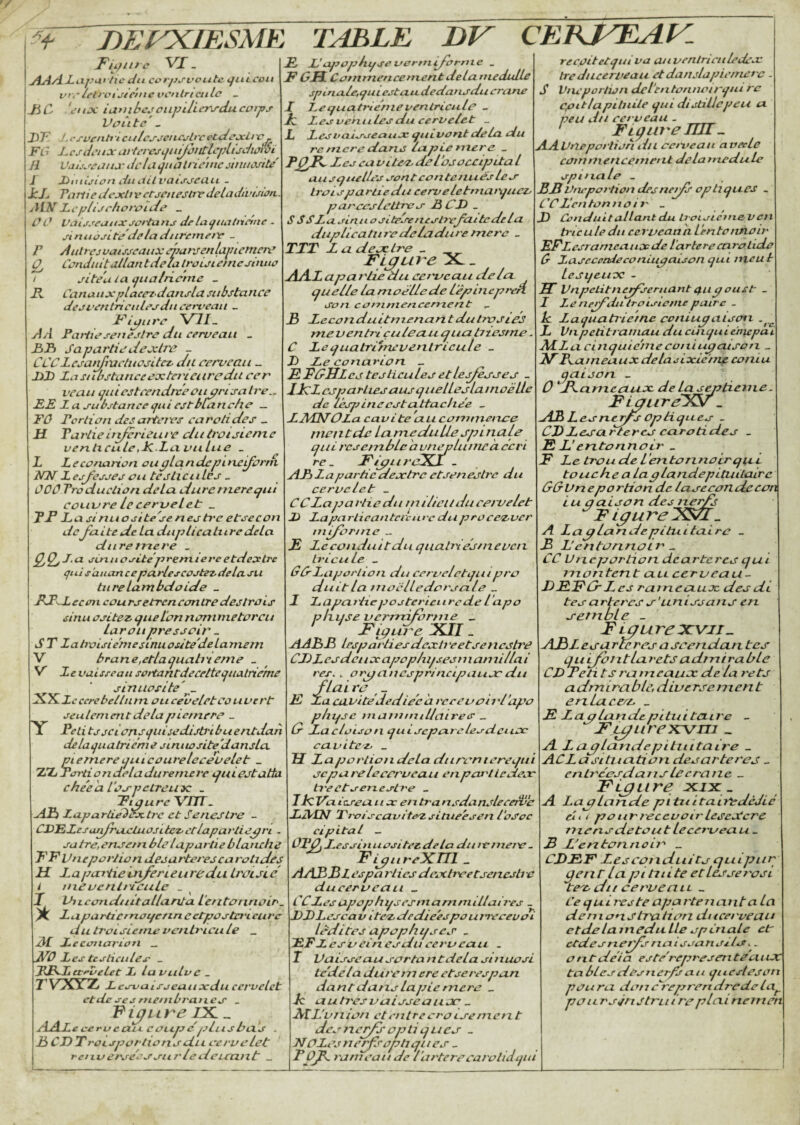 54 DEUXIESME TABLE DV CERVEAV.
Figure VI.
AAA La partie du corps voute qui cou
vre le troisieme ventricule
BC eux iambes ou piliers du corps
Voute
DE les ventricules senestre et dextre
FG Les deux arteres qui font le plis
H Vaisseaux de la quatrieme sinuosité
I Diuision du dit vaisseau
kL Partie dextre et senestre de la diuision.
MN Le plis choroide
OO Vaisseaux sortans de la quatrieme
sinuosite de la duremere
P Autres vaisseaux epars en lapiemere
Q Conduit allant de la troisieme sinuo
sité a la quatrieme
R Canaux placez dans la substance
des ventricules du cerveau
Figure VII.
AA Partie senestre du cerveau
BB Sa partie dextre
CCC Les anfractuositez du cerveau
DD La substance exterieure du cer
veau qui est cendrée ou grisatre
EE La substance qui est blanche
FG Portion des arteres carotides
H Partie inferieure du troisieme
venticule, K. La vulue
L Le conarion ou glande pineiform
NN Les fesses ou testicules
OOO Production de la dure mere qui
couvre le cervelet
PP La sinuosite senestre et secon
de faite de la duplicature de la
dure mere
QQ La sinuosité premiere et dextre
qui s'auance par les costez de la su
ture lambdoide
RR Le con cours et rencontre des trois
sinuositez que l'on nomme torcu
lar ou pressoir
ST La troisieme sinuosite de la mem
V brane, et la quatrieme
V Le vaisseau sortant de cette quatrieme
sinuosite
XX Le cerebellum ou cevelet couvert
seulement de la piemere
Y Petits scions qui se distribuent dan
de la quatrieme sinuosite dans la
piemere qui couure le cevelet
ZZ Portion de la duremere qui est atta
chée a l'os petreux
Figure VIII.
AB La partie dextre et Senestre
CDE Les anfractuositez et la partie gri
satre, ensemble la partie blanche
FF Vne portion des arteres carotides
H La partie inferieure du troisié
me ventricule
I Vn conduit allant a l'entonnoir
K La partie moyenne et posterieure
du troisieme ventricule
M Le conarion
NO Les testicules
PR Le cervelet L la vulve
TVXYZ Les vaisseaux du cervelet
et de ses membranes
Figure IX.
AA Le cerveau coupé plus bas
BCD Trois portions du cervelet
renversées sur le deuant
E L'apophyse vermiforme
FGH Commencement de la medulle
spinale, qui est au dedans du crane
I Le quatrieme ventricule
k Les venules du cervelet
L Les vaisseaux qui vont de la du
re mere dans la pie mere
PQR Les cavitez de l'os occipital
aus quelles sont contenués les
trois partie du cervelet marquez
par ces lettres BCD
SSS La sinuosité senestre faite de la
duplicature de la dure mere
TTT La dextre
Figure X.
AA La partie du cerveau de la
quelle la moëlle de l'épine prent
son commencement
B Le conduit menant du trosiés
me ventricule au quatriesme
C Le quatrime ventricule
D Le conarion
EFGH Les testicules et les fesses
IkL es parties aus quelles la moëlle
de l'espine est attachée
LMNO La cavite au commence
ment de la medulle spinale
qui resemble a vne plume a ecri
re. Figure XI.
AB La partie dextre et senestre du
cervelet
CC La partie du milieu du cervelet
D La partie anterieure du procez ver
miforme
E Le conduit du quatriesme ven
tricule
GG La portion du cervelet qui pro
duit la moëlle dorsale
I La partie posterieure de l'apo
physe vermiforme
Figure XII.
AABB les parties dextre et senestre
CD Les deux apophyses mamillai
res.. organes principaux du
flaire
E La cavite dediée a recevoir l'apo
physe mammillaires
G La cloison qui separe les deux
cavitez
H La portion de la duremere qui
separe le cerveau en partie dex
tre et senestre
Ik Vaisseaux entrans dans le cerve
LMN Trois cavitez situées en l'os oc
cipital
OPQ Les sinuositez de la duremere
Figure XIII.
AABB Les parties dextre et senestre
du cerveau
CC Les apophyses mammillaires
DD Les cavitez dediées pour recevoi
lédites apophyses
EF Les veines du cerveau
I Vaisseau sortant de la sinuosi
té de la duremere et se respan
dant dans la pie mere
k autres vaisseaux
ML L'vnion et entrecroisement
des nerfs optiques
NO Les nerfs optiques
PQR rameau de l'artere carotid qui
recoit et qui va au ventricule dex
tre du cerveau et dans la piemere
S Vne portion de l'entonnoir qui re
çoit la pituite qui distille peu a
peu du cerveau
Figure IIII.
AA Vne portion du cerveau avec le
commencement de la medule
spinale
BB Vne portion des nerfs optiques
CC L'entonnoir
D Conduit allant du troisiéme ven
tricule du cerveau a l'entonnoir
EF Les rameaux de l'artere carotide
G La seconde coniugaison qui meut
les yeux
H Vn petit nerf seruant au goust
I Le nerf du troisieme paire
k La quatrieme coniugaison
L Vn petit ramau du cinquiéme pai
M La cinquiéme coniugaison
N Rameaux de la sixieme coniu
gaison
O Rameaux de la septieme
Figure XV.
AB Les nerfs Optiques
CD Les arteres carotides
E L'entonnoir
F Le trou de l'entonnoir qui
touche a la glande pituitairc
GG Vne portion de la seconde con
iugaison des nerfs
Figure XVI.
A La glande pituitaire
B L'entonnoir
CC Vne portion de arteres qui
montent au cerveau
DEFG Les rameaux des di
tes arteres s'unissans en
semble
Figure XVII.
AB Les arteres ascendantes
qui font la rets admirable
CD Petits rameaux de la rets
admirable, diversement
enlacez
E La glande pituitaire
Figure XVIII
A La glande pituitaire
ACL a situation des arteres
entrées dans le crane
Figure XIX.
A La glande pituitaire dédié
pour recevoir les excre
mens de tout le cerveau
B L'entonnoir
CDEF Les conduits qui pur
gent la pituite et les serosi
tez du cerveau
Ce qui reste apartenant a la
demonstration du cerveau
et de la medulle spinale et
et des nerfs naissans
ont déja esté representé aux
tables des nerfs au quesles on
poura donc reprendre de la
pour s'instruire plainement